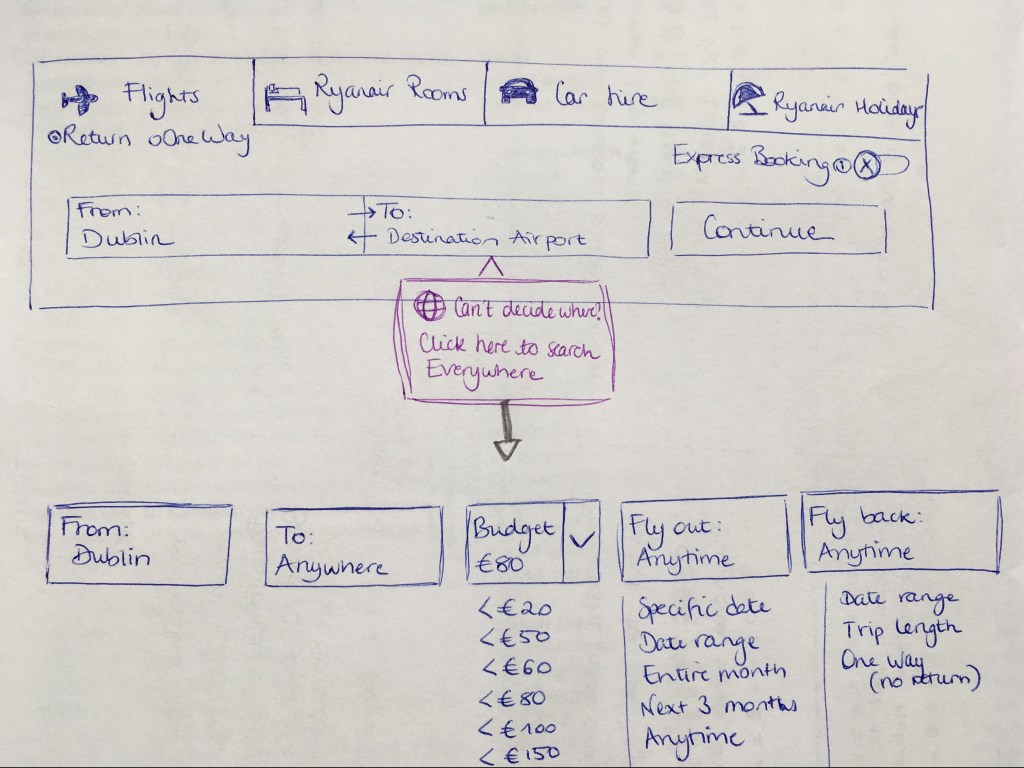 Flights
Ryanair Rooms
Car hire
Ryanair Holidays
Return One Way
Express Booking
From:
Dublin
To:
Destination Airport
Continue
Can't decide where?
Click here to search
Everywhere
From:
Dublin
To:
Anywhere
Budget
€80
Fly out:
Anytime
Fly back:
Anytime
<€20
<€50
<€60
<€80
<€100
<€150
Specific date
Date range
Entire month
Next 3 months
Anytime
Date range
Trip length
One Way
(no return)